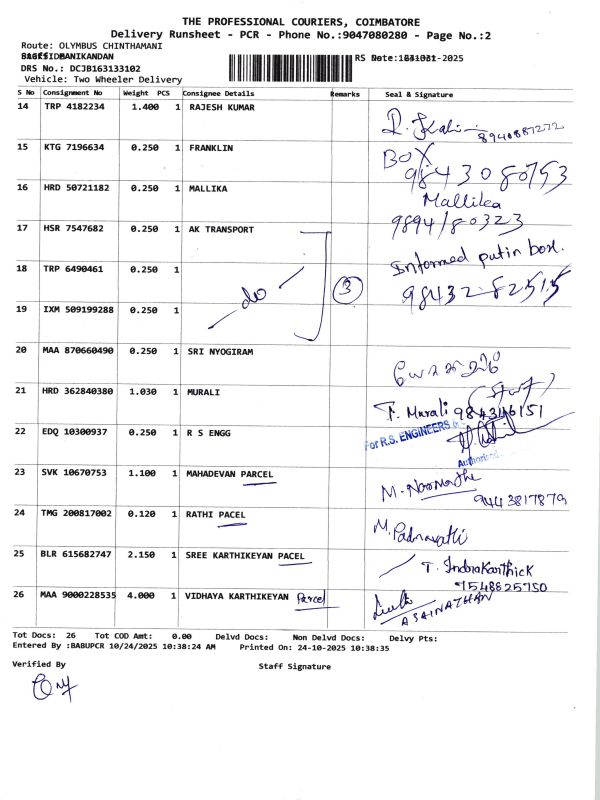 THE PROFESSIONAL COURIERS, COIMBATORE
Delivery Runsheet - PCR - Phone No.:9047080280 - Page No.:2
Route: OLYMBUS CHINTHAMANI
DRS No.: DCJB163133102
Vehicle: Two Wheeler Delivery
S No Consignment No Weight PCS Consignee Details Remarks Seal & Signature
14 TRP 4182234 1.400 1 RAJESH KUMAR
8940887272
15 KTG 7196634 0.250 1 FRANKLIN BOX
98430 80753
16 HRD 50721182 0.250 1 MALLIKA Mallika
9894180323
17 HSR 7547682 0.250 1 AK TRANSPORT
Informed put in box.
18 TRP 6490461 0.250 1 do 3 98432-82515
19 IXM 509199288 0.250 1
20 MAA 870660490 0.250 1 SRI NYOGIRAM
(Staff)
21 HRD 362840380 1.030 1 MURALI T. Murali 9843146151
22 EDQ 10300937 0.250 1 R S ENGG For R.S. ENGINEERS
23 SVK 10670753 1.100 1 MAHADEVAN PARCEL
9443817879
24 TMG 200817002 0.120 1 RATHI PACEL M. Padmavathi
25 BLR 615682747 2.150 1 SREE KARTHIKEYAN PACEL T. Indrakarthick
9548825750
26 MAA 9000228535 4.000 1 VIDHAYA KARTHIKEYAN Parcel
ASAINATHAN
Tot Docs: 26 Tot COD Amt: 0.00 Delvd Docs: Non Delvd Docs: Delvy Pts:
Entered By :BABUPCR 10/24/2025 10:38:24 AM Printed On: 24-10-2025 10:38:35
Verified By Staff Signature